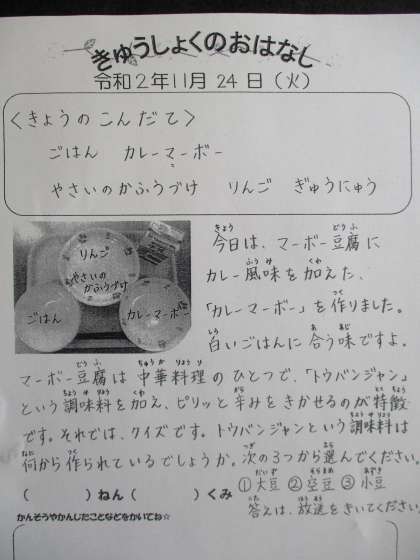 きゅうしょくのおはなし
令和2年11月24日(火)
〈きょうのこんだて〉
ごはん カレーマーボー
やさいのかふうづけ りんご ぎゅうにゅう
りんご
やさいの
かふうづけ
ごはん
カレーマーボー
今日は、マーボー豆腐に
カレー風味を加えた、
「カレーマーボー」を作りました。
白いごはんに合う味ですよ。
マーボー豆腐は中華料理のひとつで、「トウバンジャン」
という調味料を加え、ピリッと辛みをきかせるのが特徴
です。それでは、クイズです。トウバンジャンという調味料は
何から作られているでしょうか。次の3つから選んでください。
( )ねん( )くみ ①大豆 ②空豆 ③小豆
かんそうやかんじたことなどをかいてね☆ 答えは、放送をきいてください。